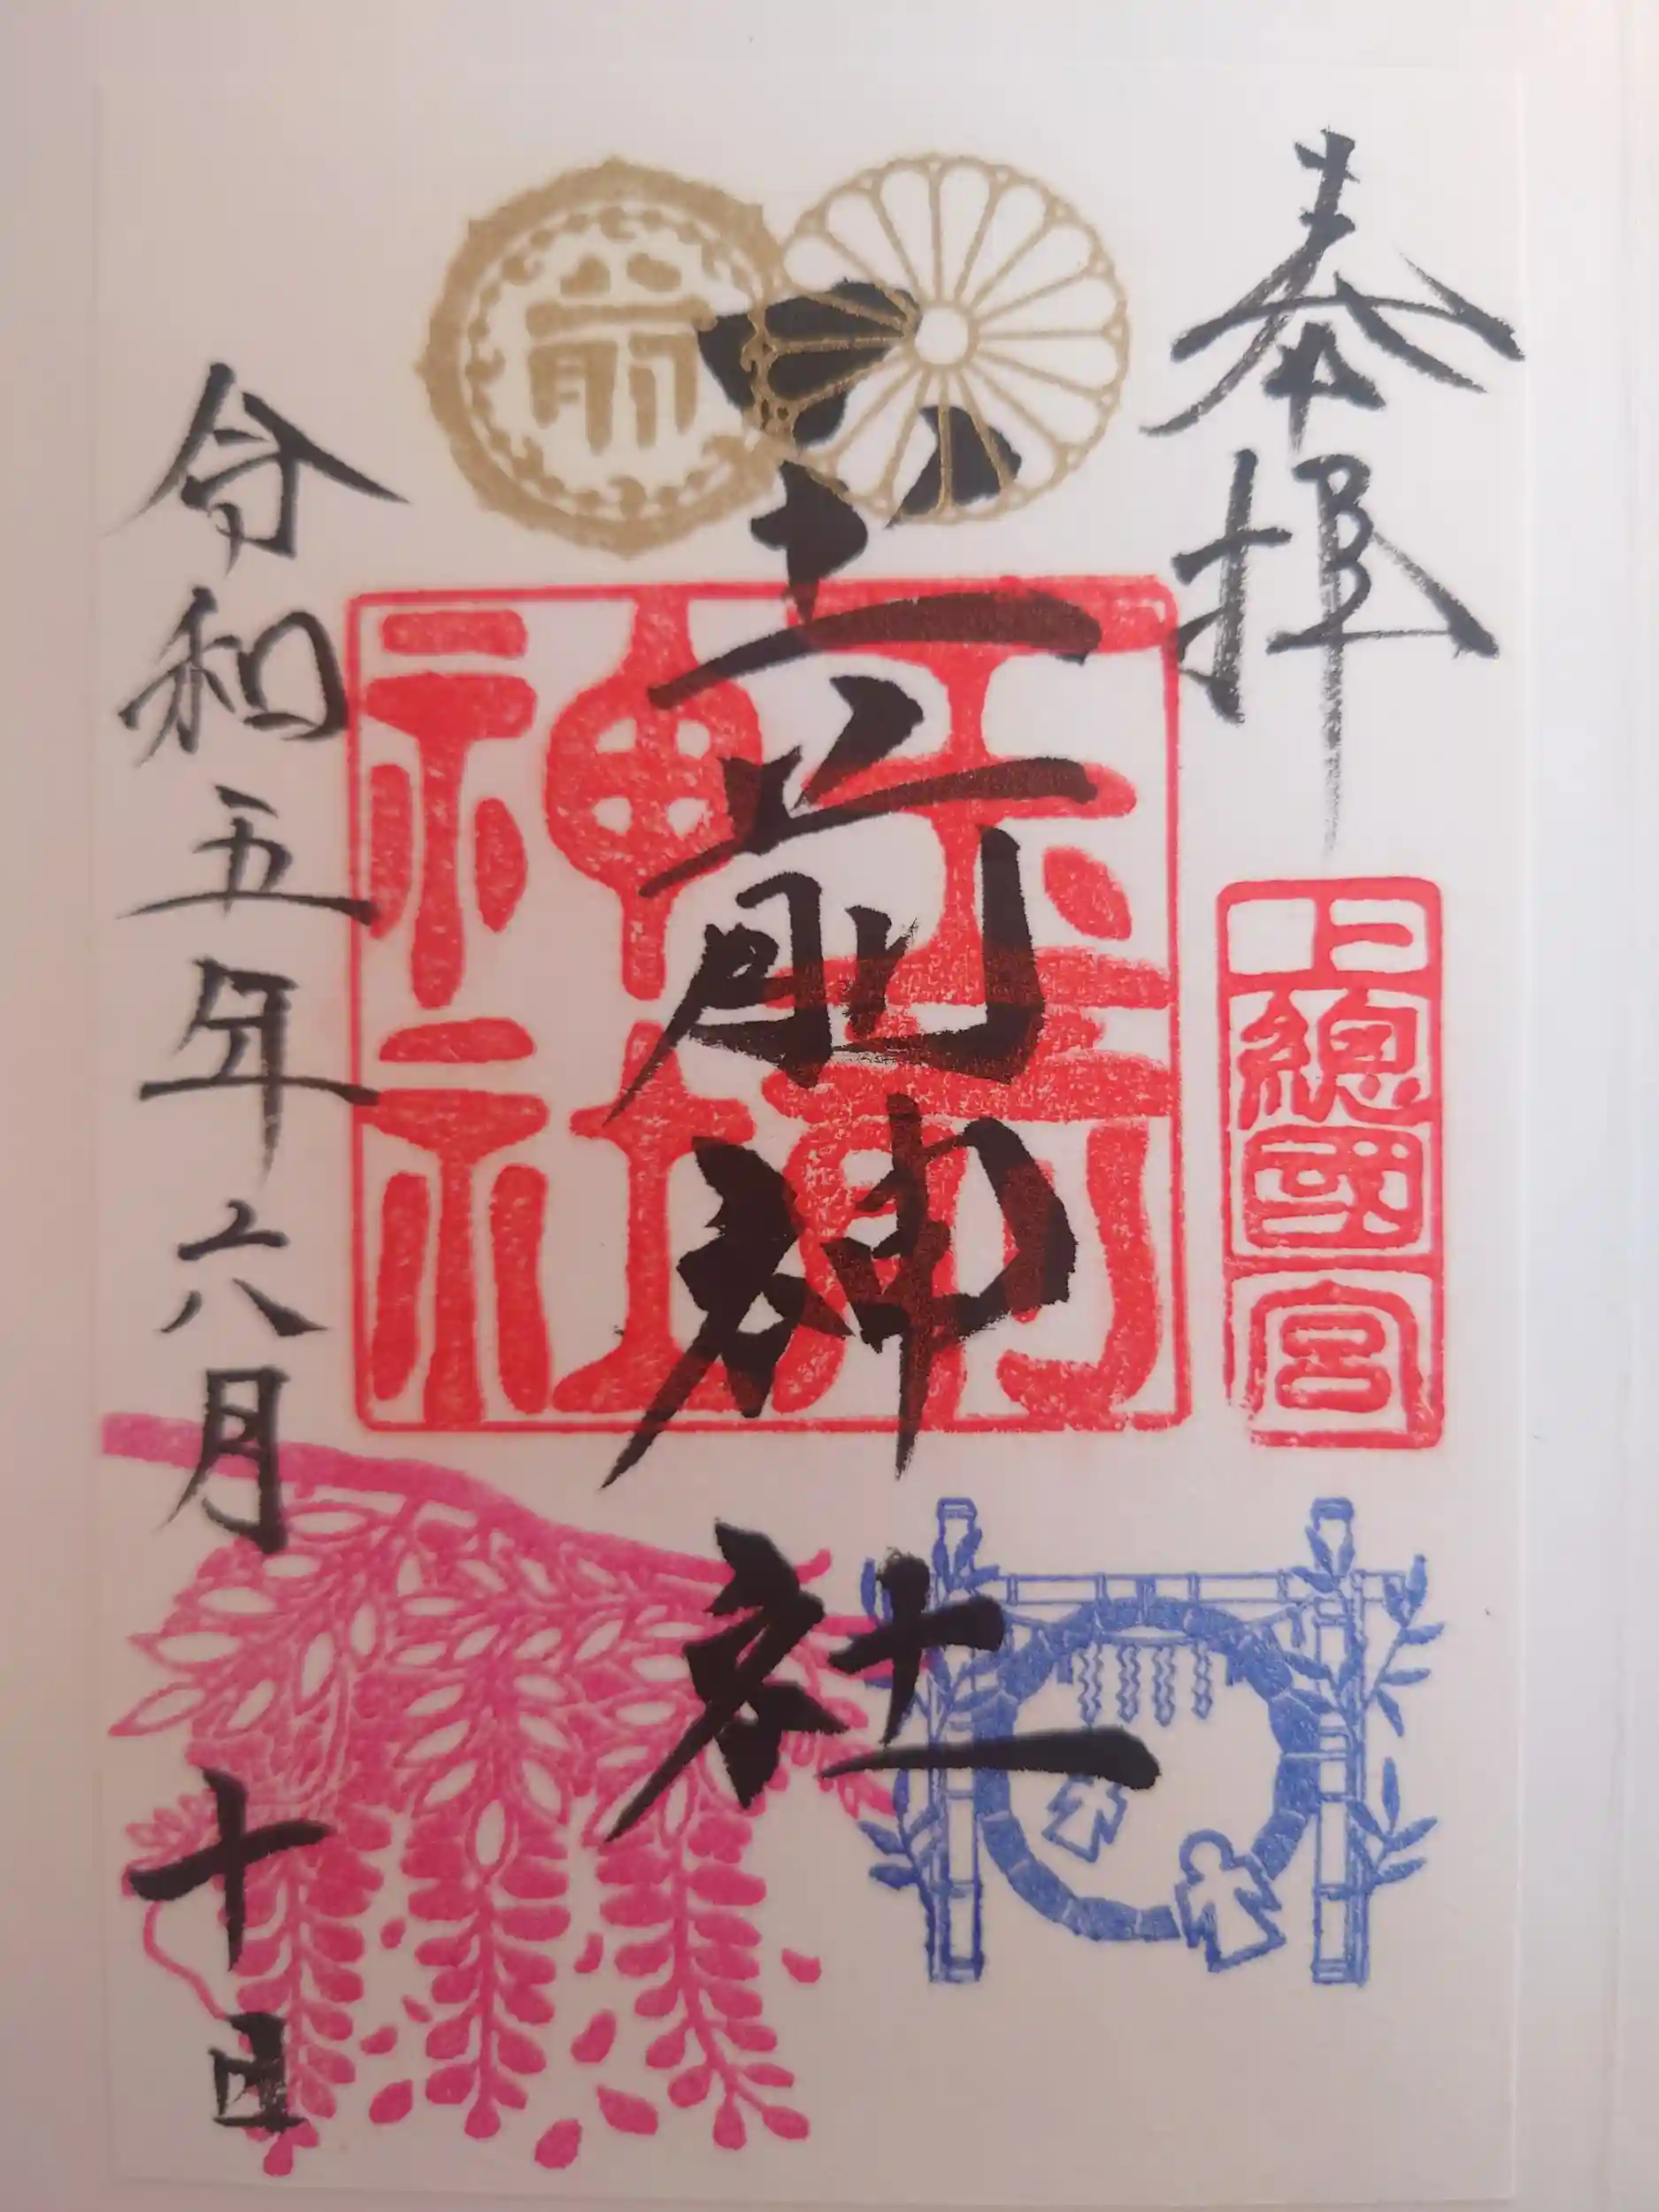 奉拝
上總國一宮
前
玉前神社
玉前神社
令和五年六月十日